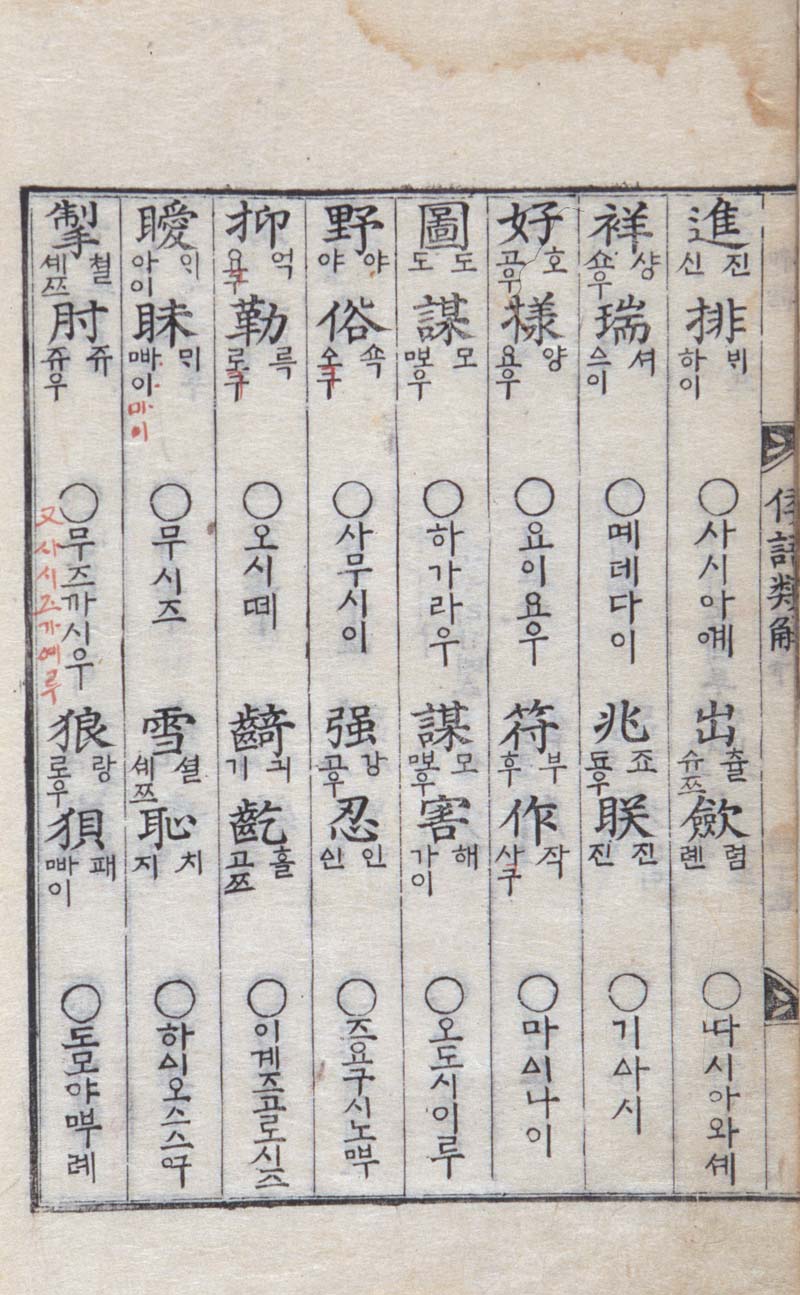 倭語類解
進 진 신 排 ᄇᆡ 하이 ○사시아예 出 츌 슈쯔 斂 렴 롄 ○따시아와셰
祥 샹 쇼우 瑞 셔 스이 ○몌데다이 兆 죠 됴우 眹 진 진 ○기ᅀᅡ시
好 호 고우 樣 양 요우 ○요이요우 符 부 후 作 작 사구 ○마ᅀᅵ나이
圖 도 도 謀 모 ᄜᅩ우 ○하가라우 謀 모 ᄜᅩ우 害 해 가이 ○오도시이루
野 야 야 俗 쇽 쇼구 ○사무시이 强 강 고우 忍 인 신 ○즈요구시노ᄜᅮ
抑 억 요구 勒 륵 로구 ○오시떼 齮 긔 기 齕 흘 고쯔 ○이계즈골로시즈
曖 ᄋᆡ 아이 昧 ᄆᆡ ᄜᅡ이 마이 ○무시즈 雪 셜 셰쯔 恥 치 지 ○하ᅀᅵ오스스
掣 쳘 셰쯔 肘 쥬 쥬우 ○무즈까시우 又사시즈가예루 狼 랑 로우 狽 패 ᄜᅡ이 ○도모야ᄜᅮ례